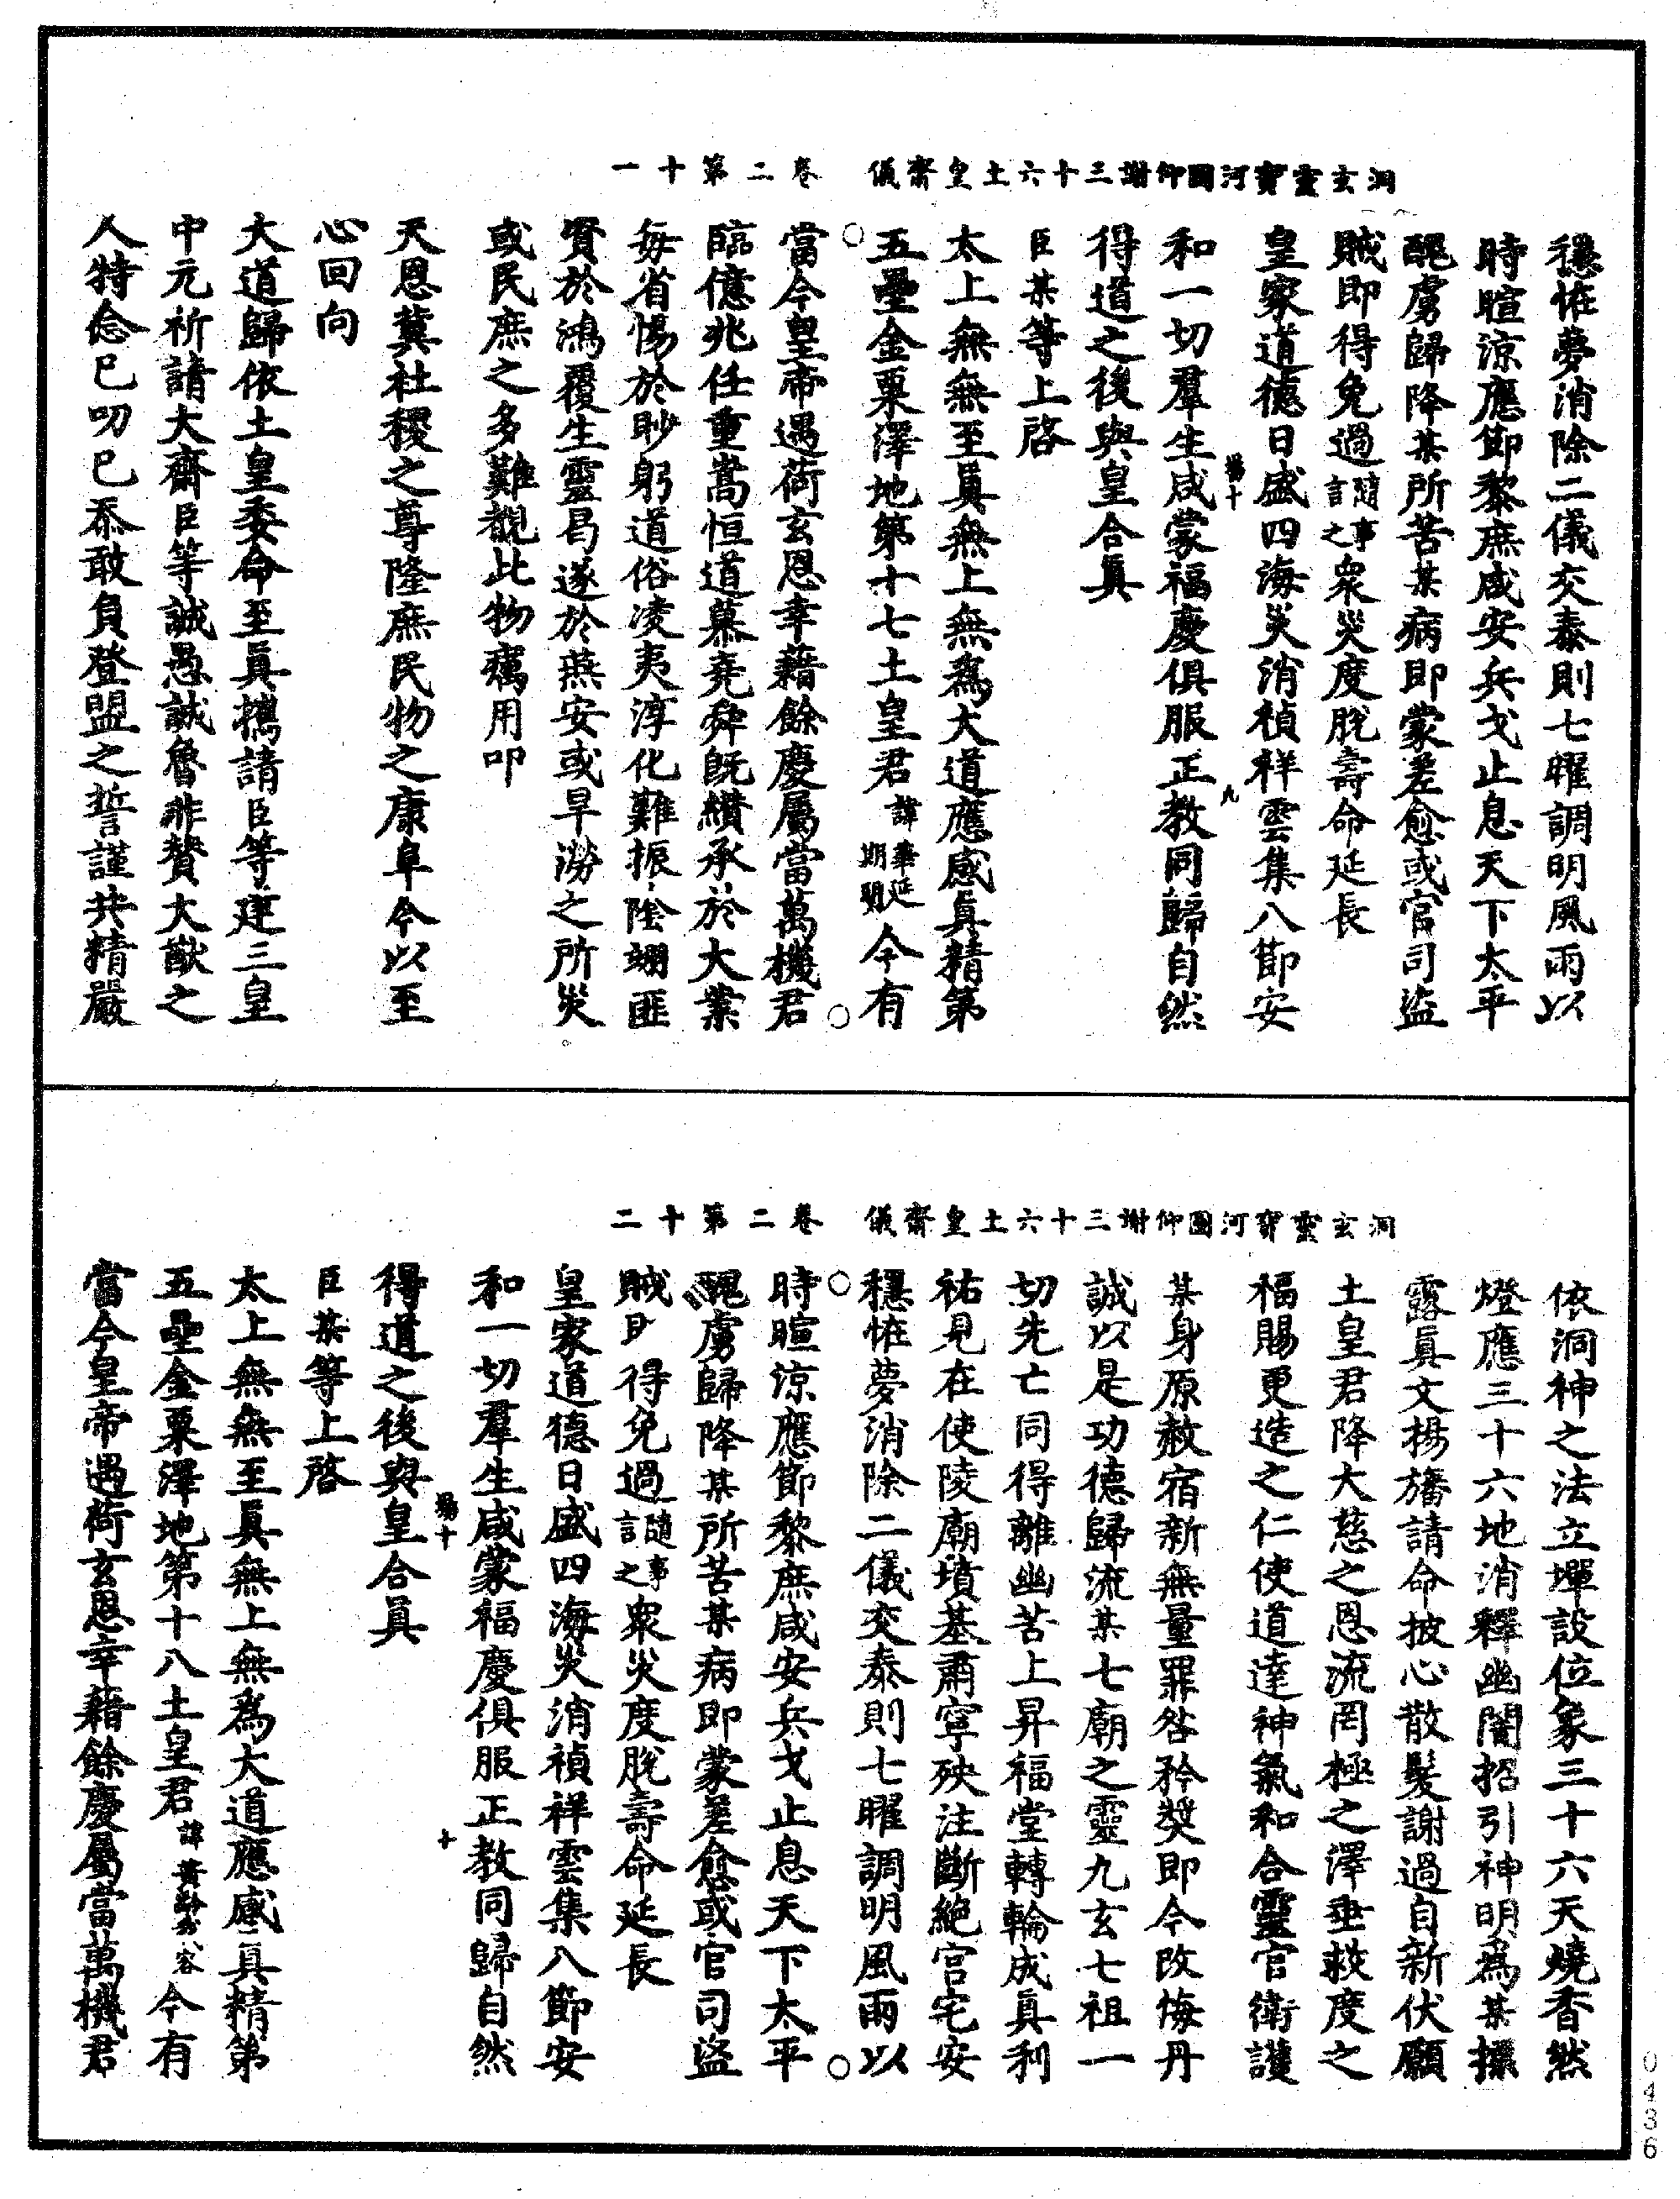 洞玄靈寶河圖仰謝三十六土皇齋儀　卷二第十一
穩惟夢消除二儀交泰則七曜調明風雨以
時暄涼應節黎庶咸安兵戈止息天下太平
醜虜歸降某所苦某病即蒙差愈或官司盜
賊即得免過隨事言之衆災度脫壽命延長
皇家道德日盛四海災消禎祥雲集八節安
和一切羣生咸蒙福慶俱服正教同歸自然
得道之後與皇合眞
臣某等上啓
太上無無至眞無上無爲大道應感眞精第
五壘金粟澤地第十七土皇君諱華延期明今有
當今皇帝遇荷玄恩幸藉餘慶屬當萬機君
臨億兆任重嵩恒道慕堯舜旣纘承於大業
每省惕於眇躬道俗淩夷淳化難振陰翊匪
賢於鴻覆生靈曷遂於燕安或旱澇之所災
或民庶之多難覩此物癘用叩
天恩冀社稷之尊隆庶民物之康阜今以至
心回向
大道歸依土皇委命至眞攜請臣等建三皇
中元祈請大齋臣等誠愚誠魯非贊大猷之
人特念已叨已忝敢負登盟之誓謹共精嚴
洞玄靈寶河圖仰謝三十六土皇齋儀　卷二第十二
依洞神之法立墠設位象三十六天燒香然
燈應三十六地消釋幽闇招引神明爲某攞
露眞文揚旛請命披心散髮謝過自新伏願
土皇君降大慈之恩流罔極之澤垂救度之
福賜更造之仁使道達神氣和合靈官衛護
某身原赦宿新無量罪咎矜奬即今改悔丹
誠以是功德歸流某七廟之靈九玄七祖一
切先亡同得離幽苦上昇福堂轉輪成眞利
祐見在使陵廟墳基肅寧殃注斷絕宮宅安
穩惟夢消除二儀交泰則七曜調明風雨以
時暄涼應節黎庶咸安兵戈止息天下太平
醜虜歸降某所苦某病即蒙差愈或官司盜
賊即得免過隨事言之衆災度脫壽命延長
皇家道德日盛四海災消禎祥雲集八節安
和一切羣生咸蒙福慶俱服正教同歸自然
得道之後與皇合眞
臣某等上啓
太上無無至眞無上無爲大道應感眞精第
五壘金粟澤地第十八土皇君諱黃齡容今有
當今皇帝遇荷玄恩幸藉餘慶屬當萬機君
0436